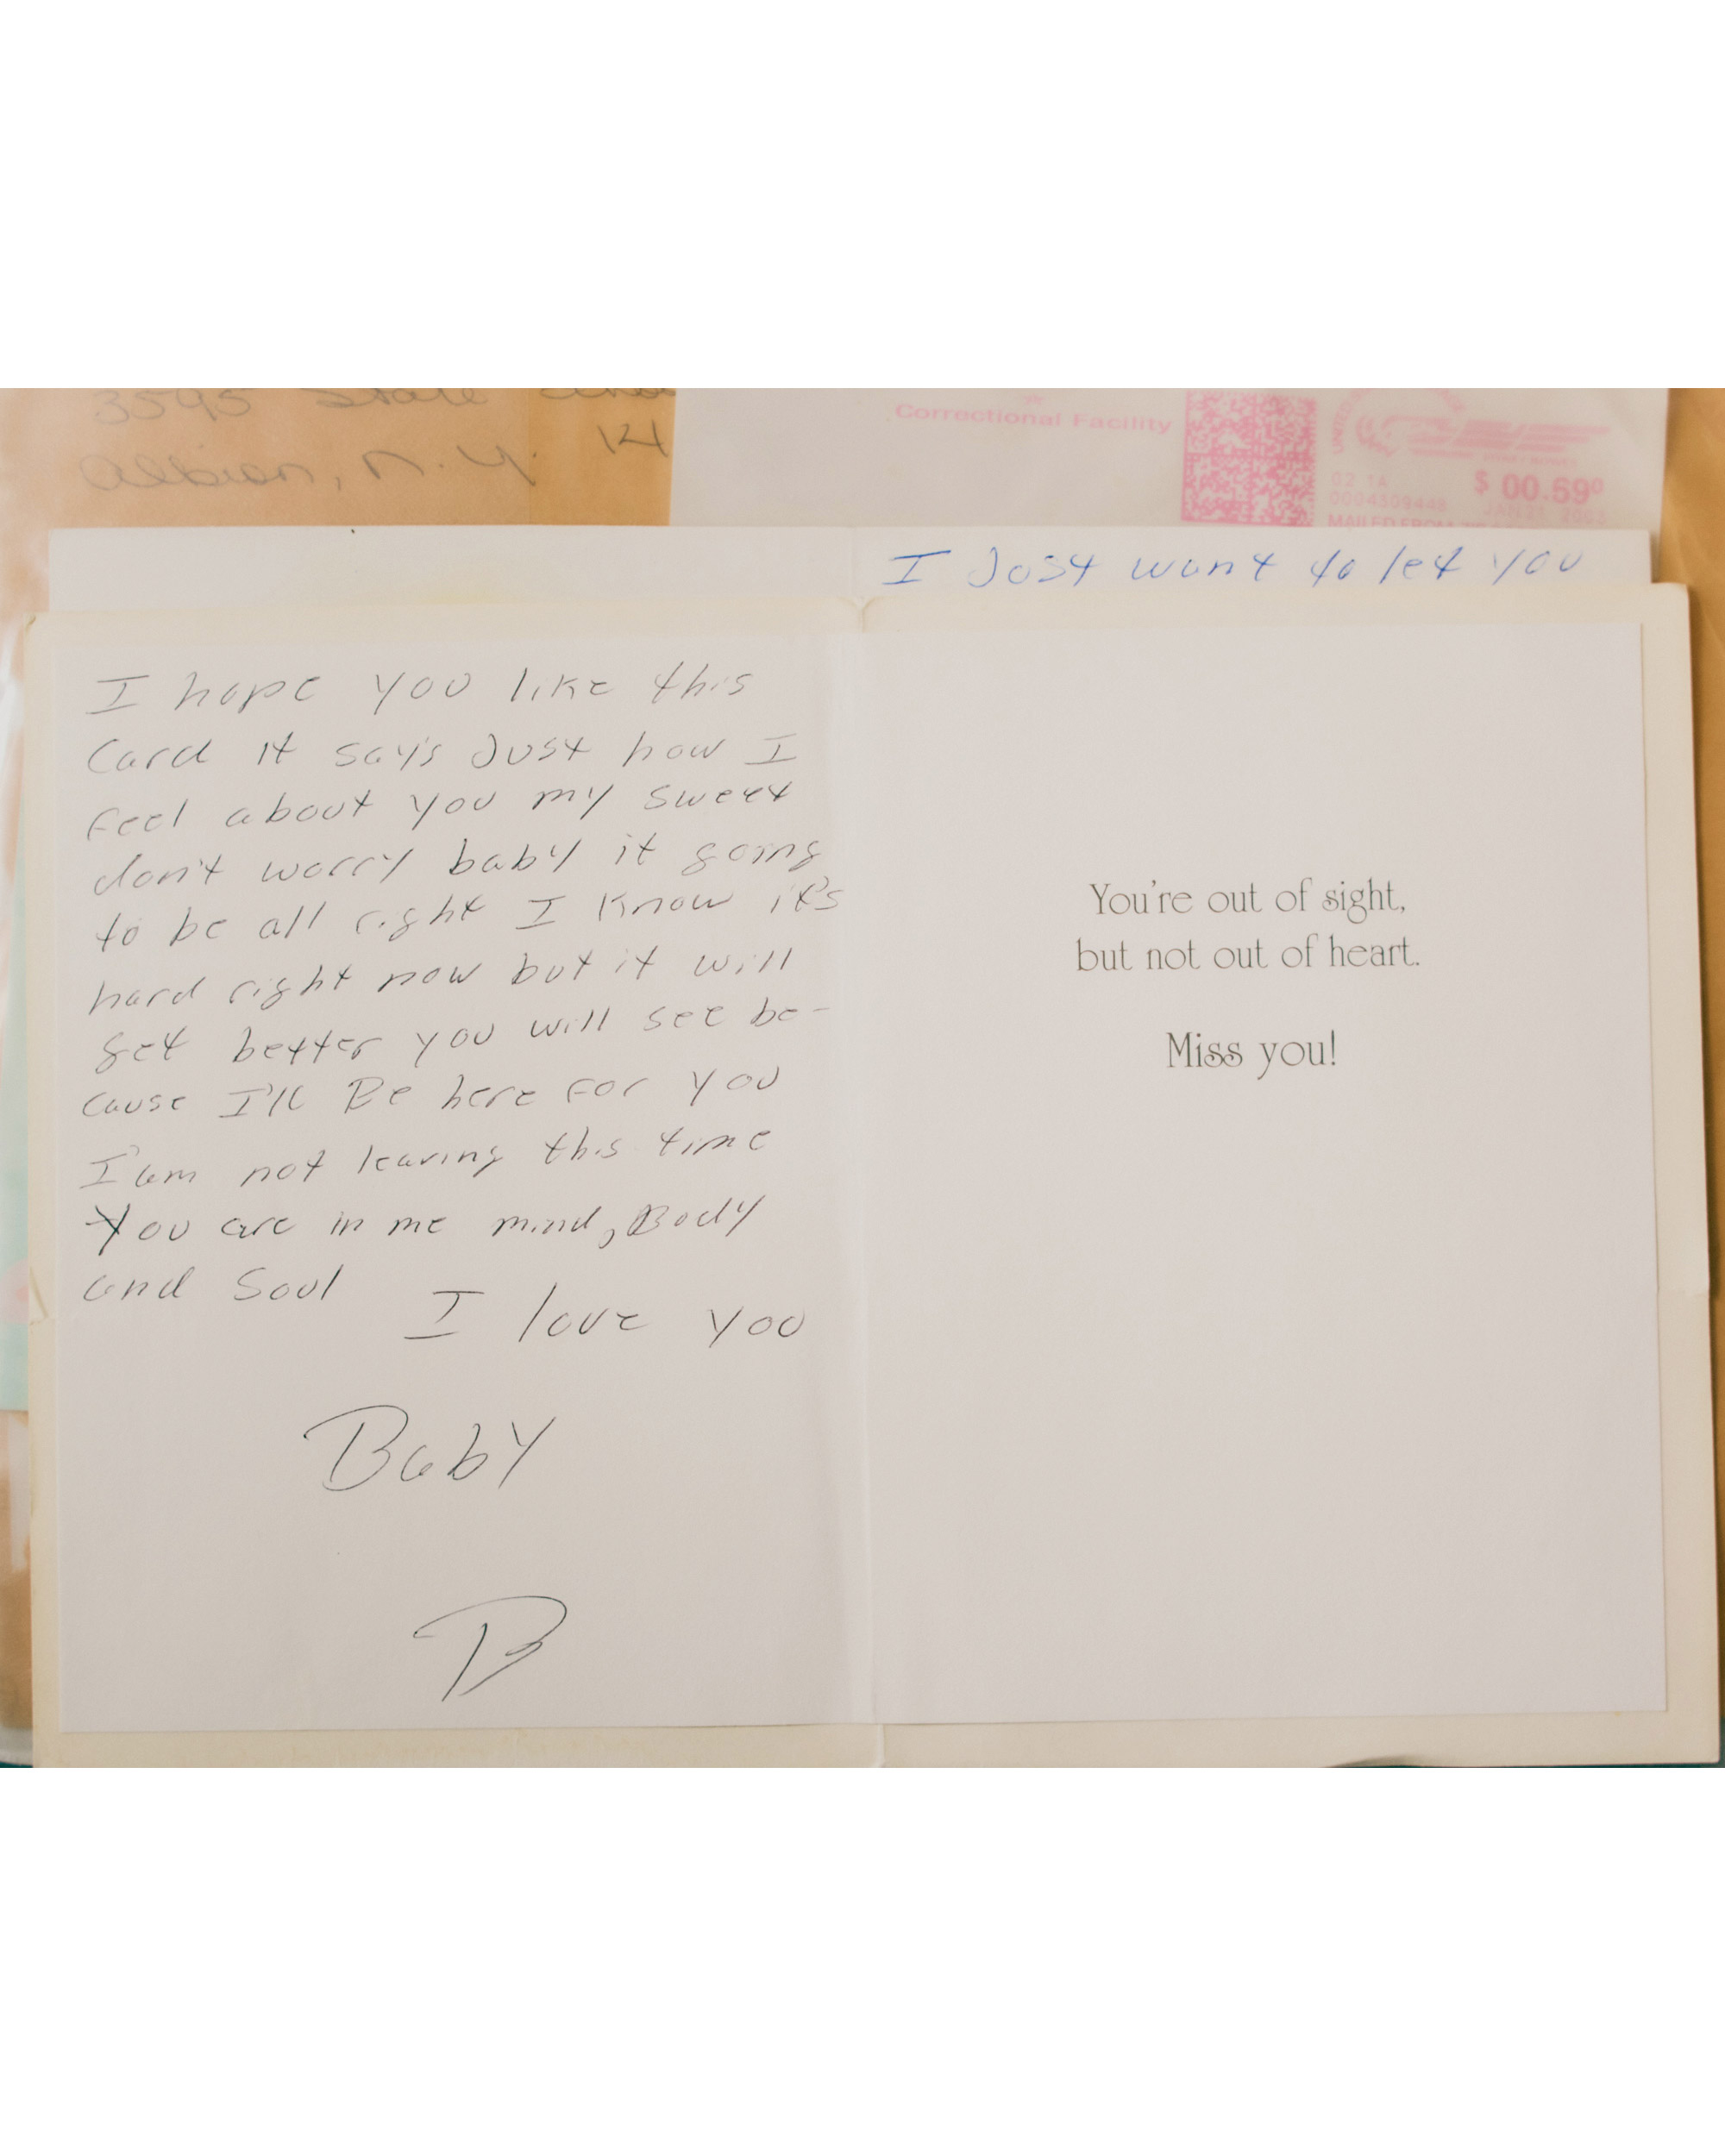 3595 State
Albion, N.Y. 14
Correctional Facility
02 1A
$ 00.590
0004309448
JAN 21
MAILED FROM
I Jost want to let you
I hope you like this
Card it say's Just how I
Feel about you my sweet
don't worry baby it going
to be all right I know it's
hard right now but it will
get better you will see be-
cause I'll Be here for you
I'am not leaving this time
You are in me mind, Body
and Soul
I love you
Baby
B
You're out of sight,
but not out of heart.
Miss you!